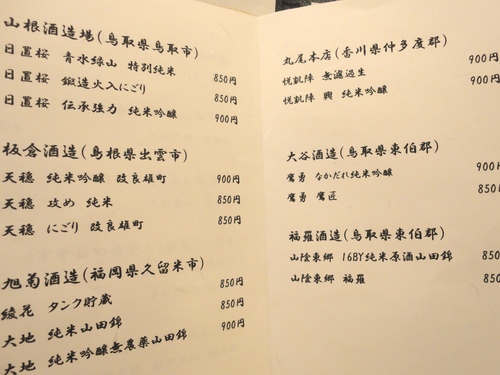 山根酒造場(鳥取県鳥取市)
日置桜 青水緑山 特別純米 850円
日置桜 鍛造火入にごり 850円
日置桜 伝承強力 純米吟醸 900円
板倉酒造(島根県出雲市)
天穏 純米吟醸 改良雄町 900円
天穏 攻め 純米 850円
天穏 にごり 改良雄町 850円
旭菊酒造(福岡県久留米市)
綾花 タンク貯蔵 850円
大地 純米山田錦 850円
大地 純米吟醸無農薬山田錦 900円
丸尾本店(香川県仲多度郡)
悦凱陣 無濾過生 900円
悦凱陣 興 純米吟醸 900円
大谷酒造(鳥取県東伯郡)
鷹勇 なかだれ純米吟醸 900円
鷹勇 鷹匠 850
福羅酒造(鳥取県東伯郡)
山陰東郷 16BY純米原酒山田錦 850
山陰東郷 福羅 850